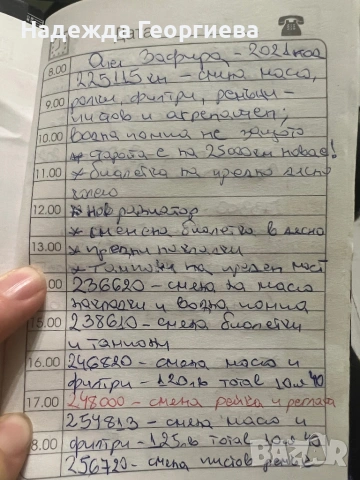 Надежда Георгиева
Дата
Опел Зафира - 2021 год
8.00
225115 км - смяна масло,
ролки, филтри, ремъци -
9.00
пистов и агрегатен;
10.00
водна помпа не защото
* старата е на 25000км новое!
11.00
* биалетка на предно лясно
колело
12.00
* нов радиатор
* сменена биалетка в ляско
13.00
* предни накладки
* тампони на преден мост
.00
236620 - смяна на масло
накладки и водна помпа
15.00
238610 - смяна биалетки
и тампони
16.00
246820 - смяна масло и
филтри - 120лв total 10w40
17.00
248000 - смяна рейка и реглаж
254813 - смяна масло и
8.00
филтри - 125лв total 10w40
256720 - смяна пистов ремък
bazar